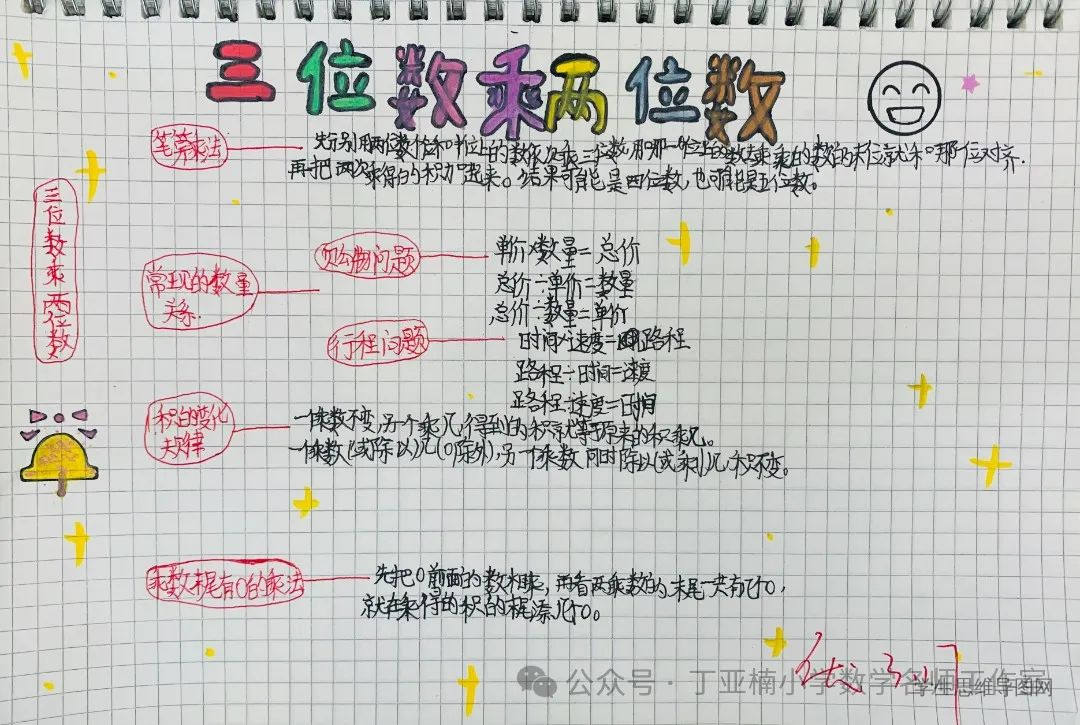 三位数乘两位数
笔算乘法
先分别用两位数个位和十位上的数依次乘三位数,用哪一位上的数去乘,乘的数的末位就和那一位对齐.
再把两次乘得的积加起来。结果可能是四位数,也可能是五位数。
三位数乘两位数
常见的数量
关系.
购物问题
单价×数量=总价
总价÷单价=数量
总价÷数量=单价
行程问题
时间×速度=路程
路程÷时间=速度
路程÷速度=时间
积的变化
规律
一个乘数不变,另一个乘几,得到的积就等于原来的积乘几。
一个乘数(或除以)几(0除外),另一个乘数同时除以(或乘)几,积不变。
乘数末尾有0的乘法
先把0前面的数相乘,再看两乘数的末尾一共有几个0,
就在乘得的积的末尾添几个0。
公众号·丁亚楠小学数学名师工作室
学生思维导图网